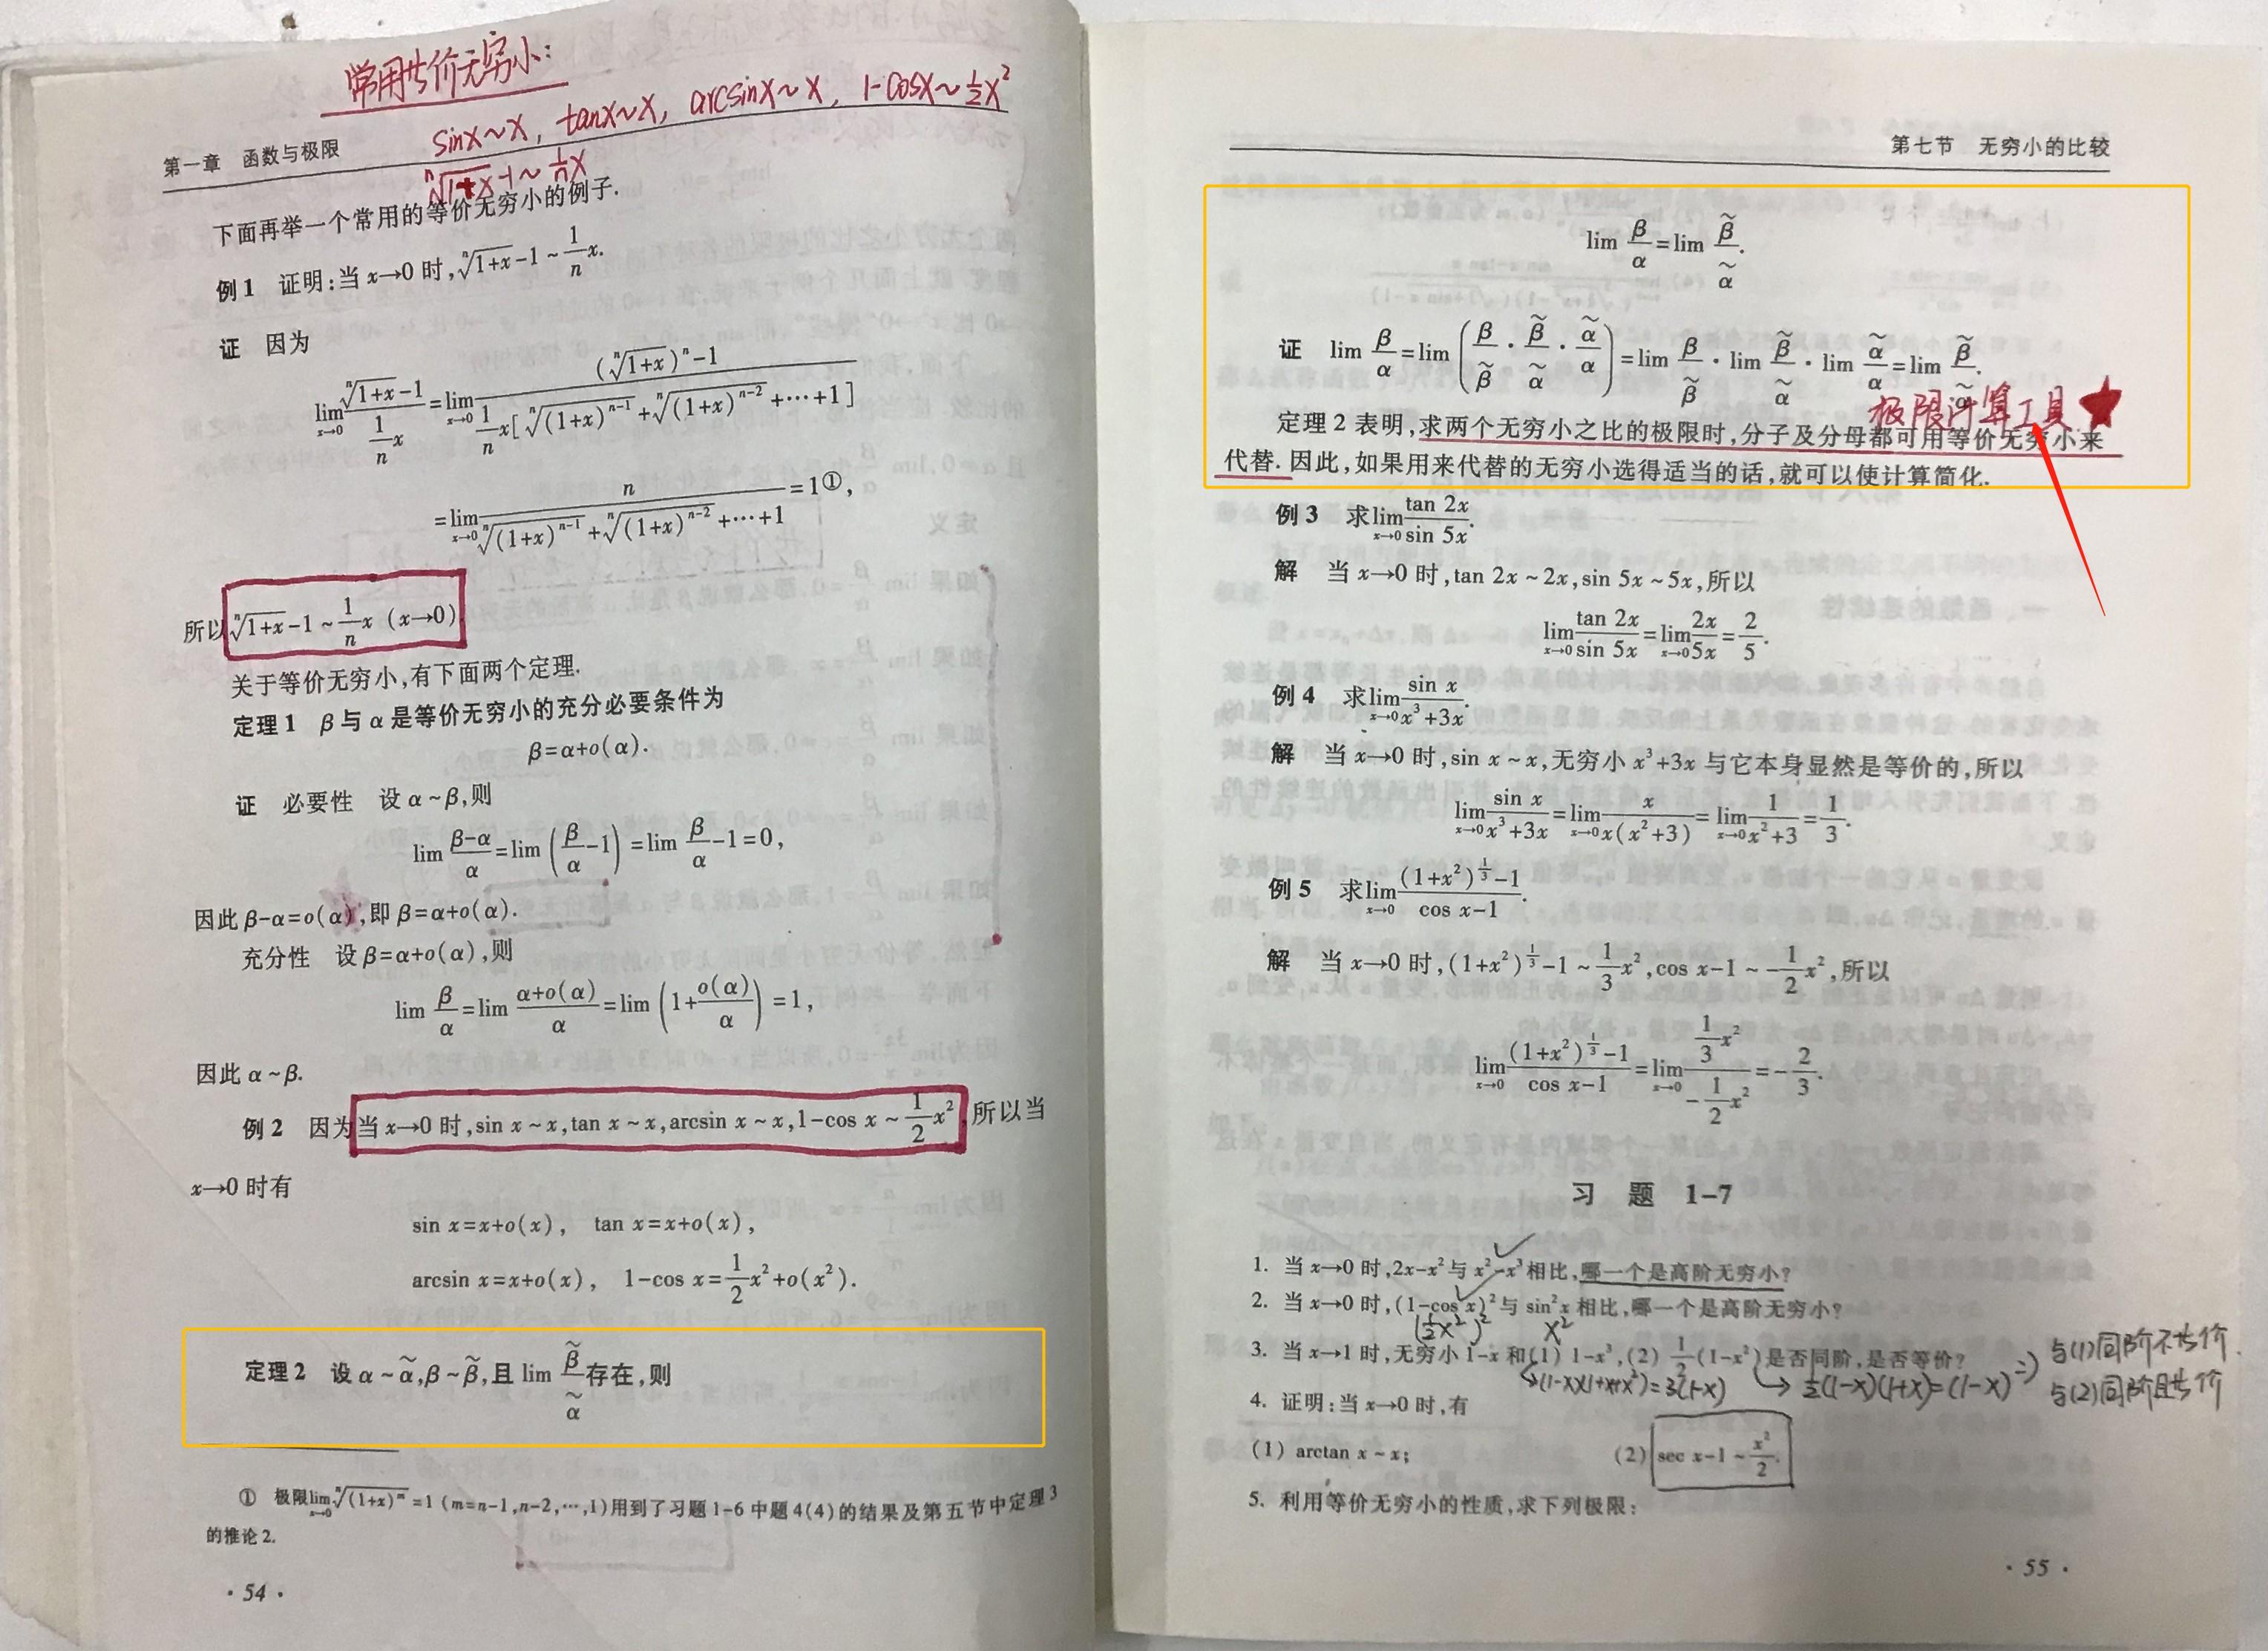 常用等价无穷小:
sinx~x, tanx~x, arcsinx~x, 1-cosx~½x²
ⁿ√(1+x)-1~(1/n)x
第一章 函数与极限
下面再举一个常用的等价无穷小的例子.
例1 证明:当 x→0 时,ⁿ√(1+x)-1~(1/n)x.
证 因为
lim_{x→0} (ⁿ√(1+x)-1)/((1/n)x)=lim_{x→0} ((ⁿ√(1+x))ⁿ-1)/((1/n)x[ⁿ√((1+x)ⁿ⁻¹)+ⁿ√((1+x)ⁿ⁻²)+⋯+1])
=lim_{x→0} n/(ⁿ√((1+x)ⁿ⁻¹)+ⁿ√((1+x)ⁿ⁻²)+⋯+1)=1①,
所以ⁿ√(1+x)-1~(1/n)x (x→0)
关于等价无穷小,有下面两个定理.
定理1 β与α是等价无穷小的充分必要条件为
β=α+o(α).
证 必要性 设α~β,则
lim (β-α)/α=lim (β/α-1)=lim β/α-1=0,
因此β-α=o(α),即β=α+o(α).
充分性 设β=α+o(α),则
lim β/α=lim (α+o(α))/α=lim (1+o(α)/α)=1,
因此α~β.
例2 因为当x→0时,sin x~x,tan x~x,arcsin x~x,1-cos x~(1/2)x²,所以当
x→0时有
sin x=x+o(x), tan x=x+o(x),
arcsin x=x+o(x), 1-cos x=(1/2)x²+o(x²).
定理2 设α~α̃,β~β̃,且lim β̃/α̃存在,则
① 极限lim_{x→0} ⁿ√((1+x)ᵐ)=1 (m=n-1,n-2,⋯,1)用到了习题1-6中题4(4)的结果及第五节中定理3
的推论2.
· 54 ·
第七节 无穷小的比较
lim β/α=lim β̃/α̃.
证 lim β/α=lim (β/β̃·β̃/α̃·α̃/α)=lim β/β̃·lim β̃/α̃·lim α̃/α=lim β̃/α̃.
极限计算工具★
定理2表明,求两个无穷小之比的极限时,分子及分母都可用等价无穷小来
代替.因此,如果用来代替的无穷小选得适当的话,就可以使计算简化.
例3 求lim_{x→0} tan 2x/sin 5x.
解 当x→0时,tan 2x~2x,sin 5x~5x,所以
lim_{x→0} tan 2x/sin 5x=lim_{x→0} 2x/5x=2/5.
例4 求lim_{x→0} sin x/(x³+3x).
解 当x→0时,sin x~x,无穷小x³+3x与它本身显然是等价的,所以
lim_{x→0} sin x/(x³+3x)=lim_{x→0} x/(x(x²+3))=lim_{x→0} 1/(x²+3)=1/3.
例5 求lim_{x→0} ((1+x²)^{1/3}-1)/(cos x-1).
解 当x→0时,(1+x²)^{1/3}-1~(1/3)x²,cos x-1~-(1/2)x²,所以
lim_{x→0} ((1+x²)^{1/3}-1)/(cos x-1)=lim_{x→0} ((1/3)x²)/(-(1/2)x²)=-2/3.
习 题 1-7
1. 当x→0时,2x-x²与x²-x³相比,哪一个是高阶无穷小?
2. 当x→0时,(1-cos x)²与sin²x相比,哪一个是高阶无穷小?
(½x²)² x²
3. 当x→1时,无穷小1-x和(1) 1-x³,(2) ½(1-x²)是否同阶,是否等价?
(1-x)(1+x+x²)=3(1-x) → ½(1-x)(1+x)=(1-x) ⇒ 与(1)同阶不等价.
与(2)同阶且等价
4. 证明:当x→0时,有
(1) arctan x~x; (2) sec x-1~x²/2.
5. 利用等价无穷小的性质,求下列极限:
· 55 ·